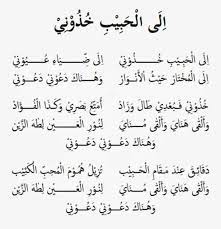 اِلَى الْحَبِيْبِ خُذُوْنِيْ
اِلَى الْحَبِيْبِ خُذُوْنِيْ اِلَى ضِيَاءِ عُيُوْنِيْ
اِلَى الْمُخْتَارِ حَيْثُ الْأَنْوَارِ وَهُنَاكَ دَعُوْنِيْ دَعُوْنِيْ
خُذُوْنِيْ فَبُعْدِيْ طَالَ وَزَادْ أُمَتِّعْ بَصَرِيْ وَكَذَا الْفُؤَادْ
وَأَلْقَى هَنَايَ وَأَلْقَى هَنَايَ لِنُوْرِ الْعَيْنِيْنِ لِطٰهَ الزَّيْنِ
وَهُنَاكَ دَعُوْنِيْ دَعُوْنِيْ
دَقَائِقْ عِنْدَ مَقَامِ الْحَبِيْبْ تُزِيْلُ هُمُوْمَ الْمُحِبِّ الْكَئِيْبْ
وَأَلْقَى هَنَايَ وَأَلْقَى هَنَايَ لِنُوْرِ الْعَيْنِيْنِ لِطٰهَ الزَّيْنِ
وَهُنَاكَ دَعُوْنِيْ دَعُوْنِيْ